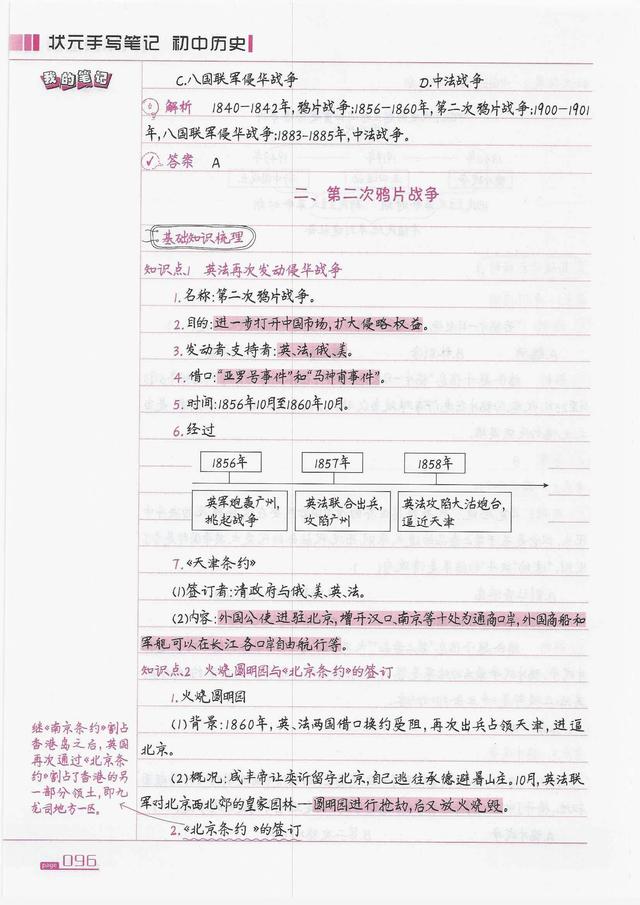 状元手写笔记 初中历史
我的笔记
C.八国联军侵华战争 D.中法战争
解析 1840-1842年,鸦片战争;1856-1860年,第二次鸦片战争;1900-1901
年,八国联军侵华战争;1883-1885年,中法战争。
答案 A
二、第二次鸦片战争
基础知识梳理
知识点1 英法再次发动侵华战争
1.名称:第二次鸦片战争。
2.目的:进一步打开中国市场,扩大侵略权益。
3.发动者、支持者:英、法,俄、美。
4.借口:“亚罗号事件”和“马神甫事件”。
5.时间:1856年10月至1860年10月。
6.经过
1856年 1857年 1858年
英军炮轰广州, 英法联合出兵, 英法攻陷大沽炮台,
挑起战争 攻陷广州 逼近天津
7.《天津条约》
(1)签订者:清政府与俄、美、英、法。
(2)内容:外国公使进驻北京,增开汉口、南京等十处为通商口岸,外国商船和
军舰可以在长江各口岸自由航行等。
知识点2 火烧圆明园与《北京条约》的签订
1.火烧圆明园
(1)背景:1860年,英、法两国借口换约受阻,再次出兵占领天津,进逼
北京。
(2)概况:咸丰帝让奕䜣留守北京,自己逃往承德避暑山庄。10月,英法联
军对北京西北郊的皇家园林—圆明园进行抢劫,后又放火烧毁。
2.《北京条约》的签订
继《南京条约》割占
香港岛之后,英国
再次通过《北京条
约》割占了香港的另
一部分领土,即九
龙司地方一区。
page 096